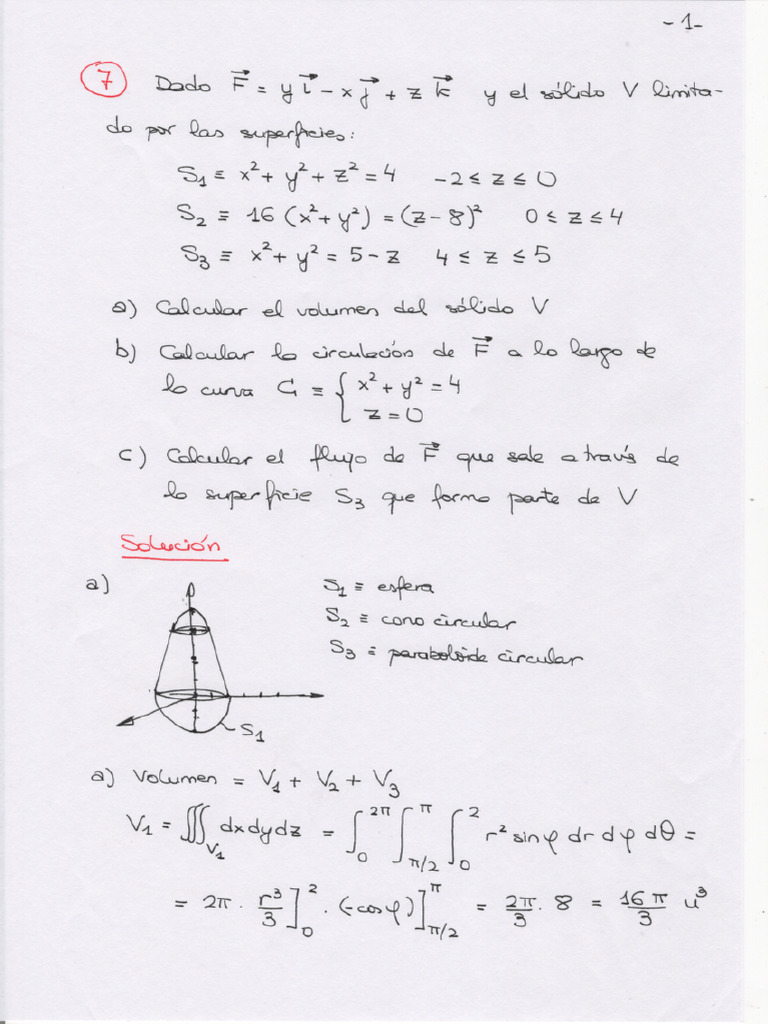 -1-
7 Dado F⃗ = y i⃗ - x j⃗ + z k⃗ y el sólido V limita-
do por las superficies:
S₁ ≡ x² + y² + z² = 4 -2 ≤ z ≤ 0
S₂ ≡ 16 (x² + y²) = (z - 8)² 0 ≤ z ≤ 4
S₃ ≡ x² + y² = 5 - z 4 ≤ z ≤ 5
a) Calcular el volumen del sólido V
b) Calcular la circulación de F⃗ a lo largo de
la curva C₁ ≡ { x² + y² = 4
z = 0
c) Calcular el flujo de F⃗ que sale a través de
la superficie S₃ que forma parte de V
Solución
a)
S₁ ≡ esfera
S₂ ≡ cono circular
S₃ ≡ paraboloide circular
S₁
a) Volumen = V₁ + V₂ + V₃
V₁ = ∭_V₁ dxdydz = ∫₀^2π ∫_π/2^π ∫₀² r² sin φ dr dφ dθ =
= 2π · r³/3 ]₀² · (-cos φ) ]_π/2^π = 2π/3 · 8 = 16π/3 u³